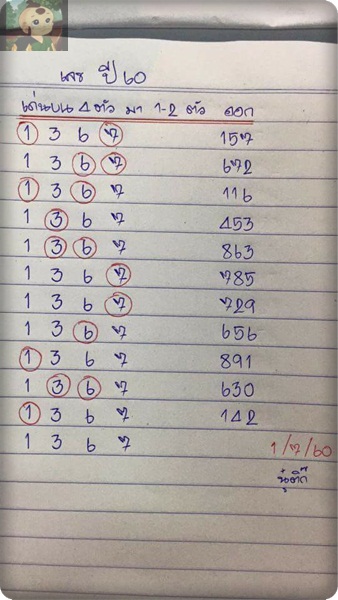 เลข ปี 60
เด่นบน 4 ตัว มา 1-2 ตัว ออก
1 3 6 7 157
1 3 6 7 672
1 3 6 7 116
1 3 6 7 453
1 3 6 7 863
1 3 6 7 785
1 3 6 7 729
1 3 6 7 656
1 3 6 7 891
1 3 6 7 630
1 3 6 7 142
1 3 6 7
1/7/60